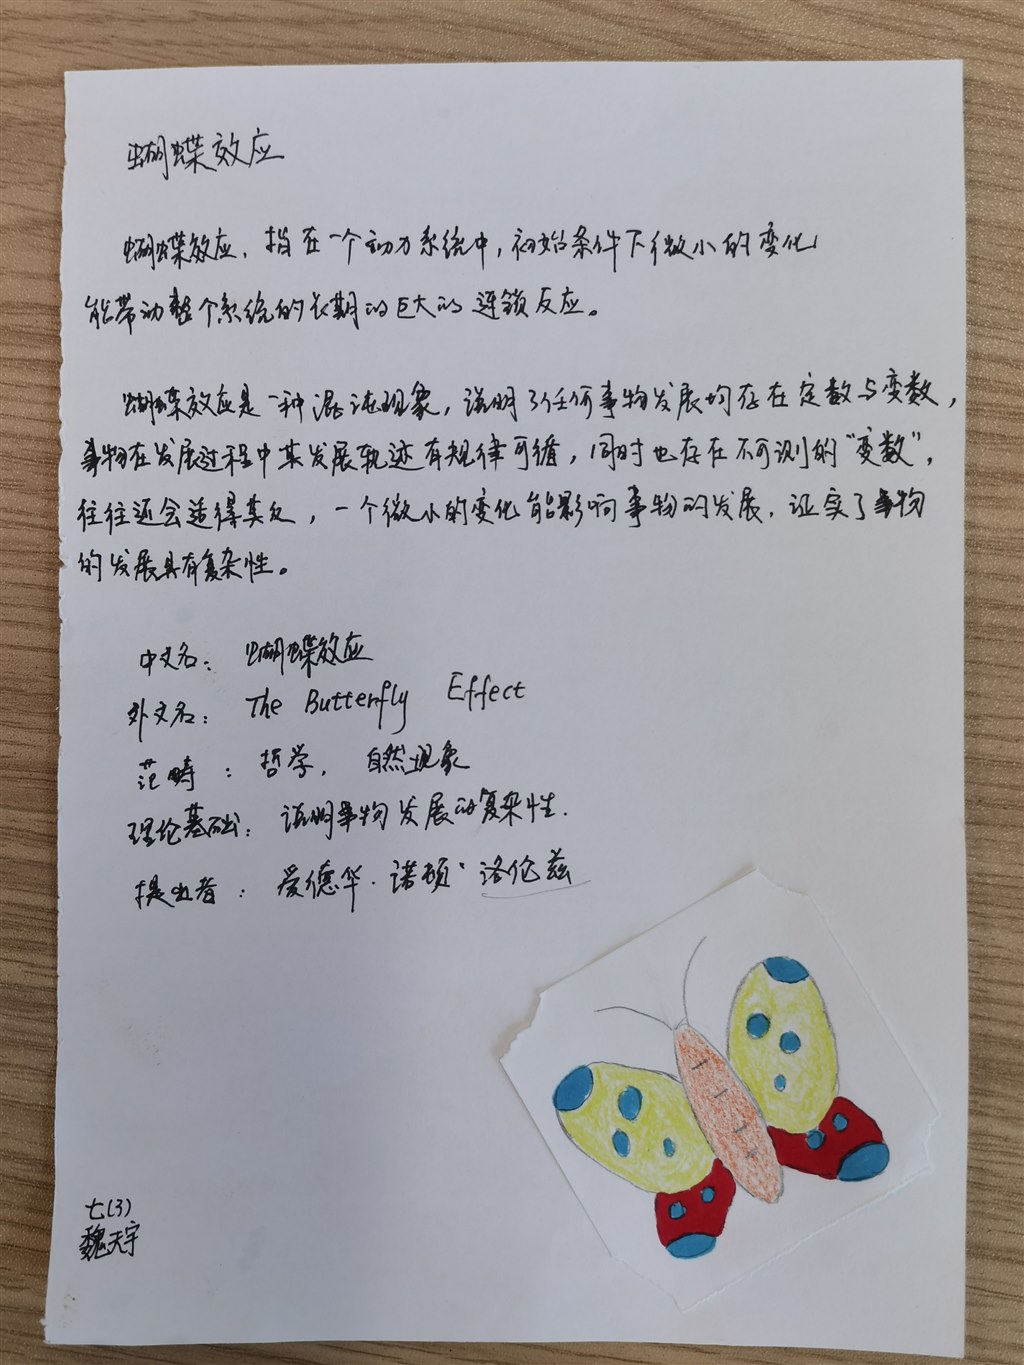 蝴蝶效应
蝴蝶效应，指在一个动力系统中，初始条件下微小的变化
能带动整个系统的长期的巨大的连锁反应。
蝴蝶效应是一种混沌现象，说明了任何事物发展均存在定数与变数，
事物在发展过程中其发展轨迹有规律可循，同时也存在不可测的“变数”，
往往还会适得其反，一个微小的变化能影响事物的发展，证实了事物
的发展具有复杂性。
中文名：蝴蝶效应
外文名：The Butterfly Effect
范畴：哲学，自然现象
理论基础：说明事物发展的复杂性.
提出者：爱德华·诺顿·洛伦兹
七(3)
魏天宇